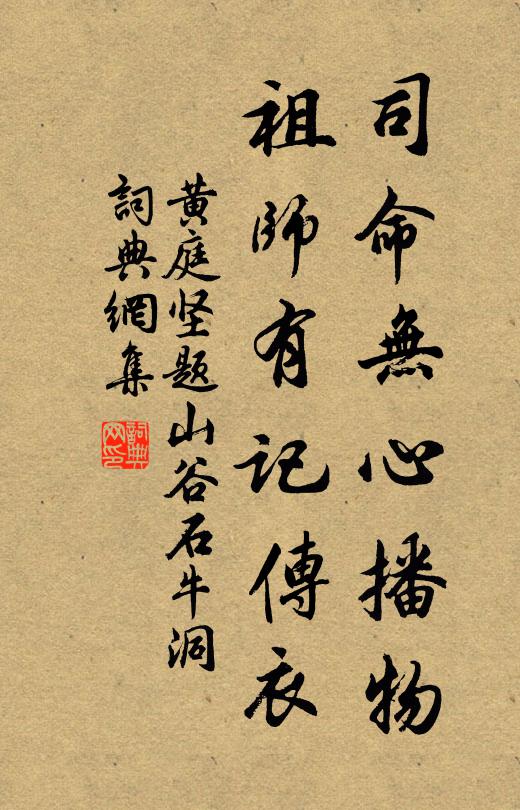 司命無心播物
祖師有記傳衣
黄庭坚题山谷石牛洞
詞典網集
詞典网印